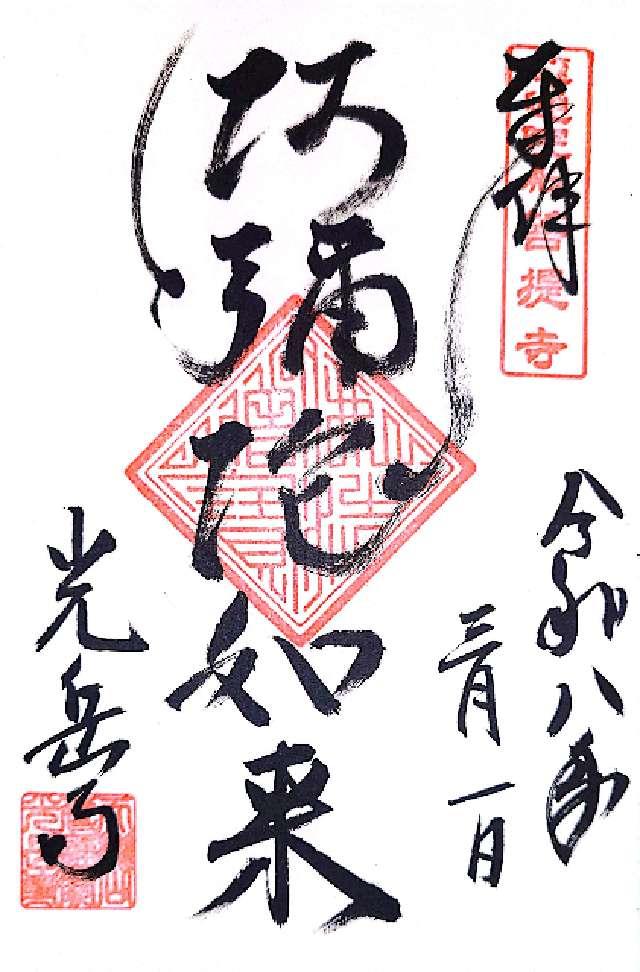 奉拝
菩提寺
令和八年
三月一日
阿彌陀如来
光岳寺